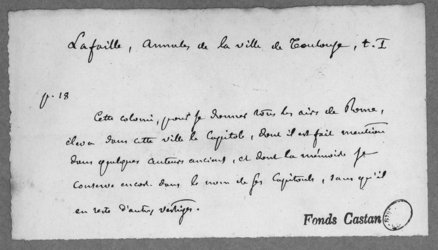 Lafaille, Annales de la ville de Toulouse, t. I
p. 18
Cette colonie, pour se donner tous les airs de Rome,
éleva dans cette ville le Capitole, dont il est fait mention
dans quelques auteurs anciens, et dont la mémoire se
conserve encor dans le nom de ses Capitouls, sans qu'il
en reste d'autres vestiges.
Fonds Castan